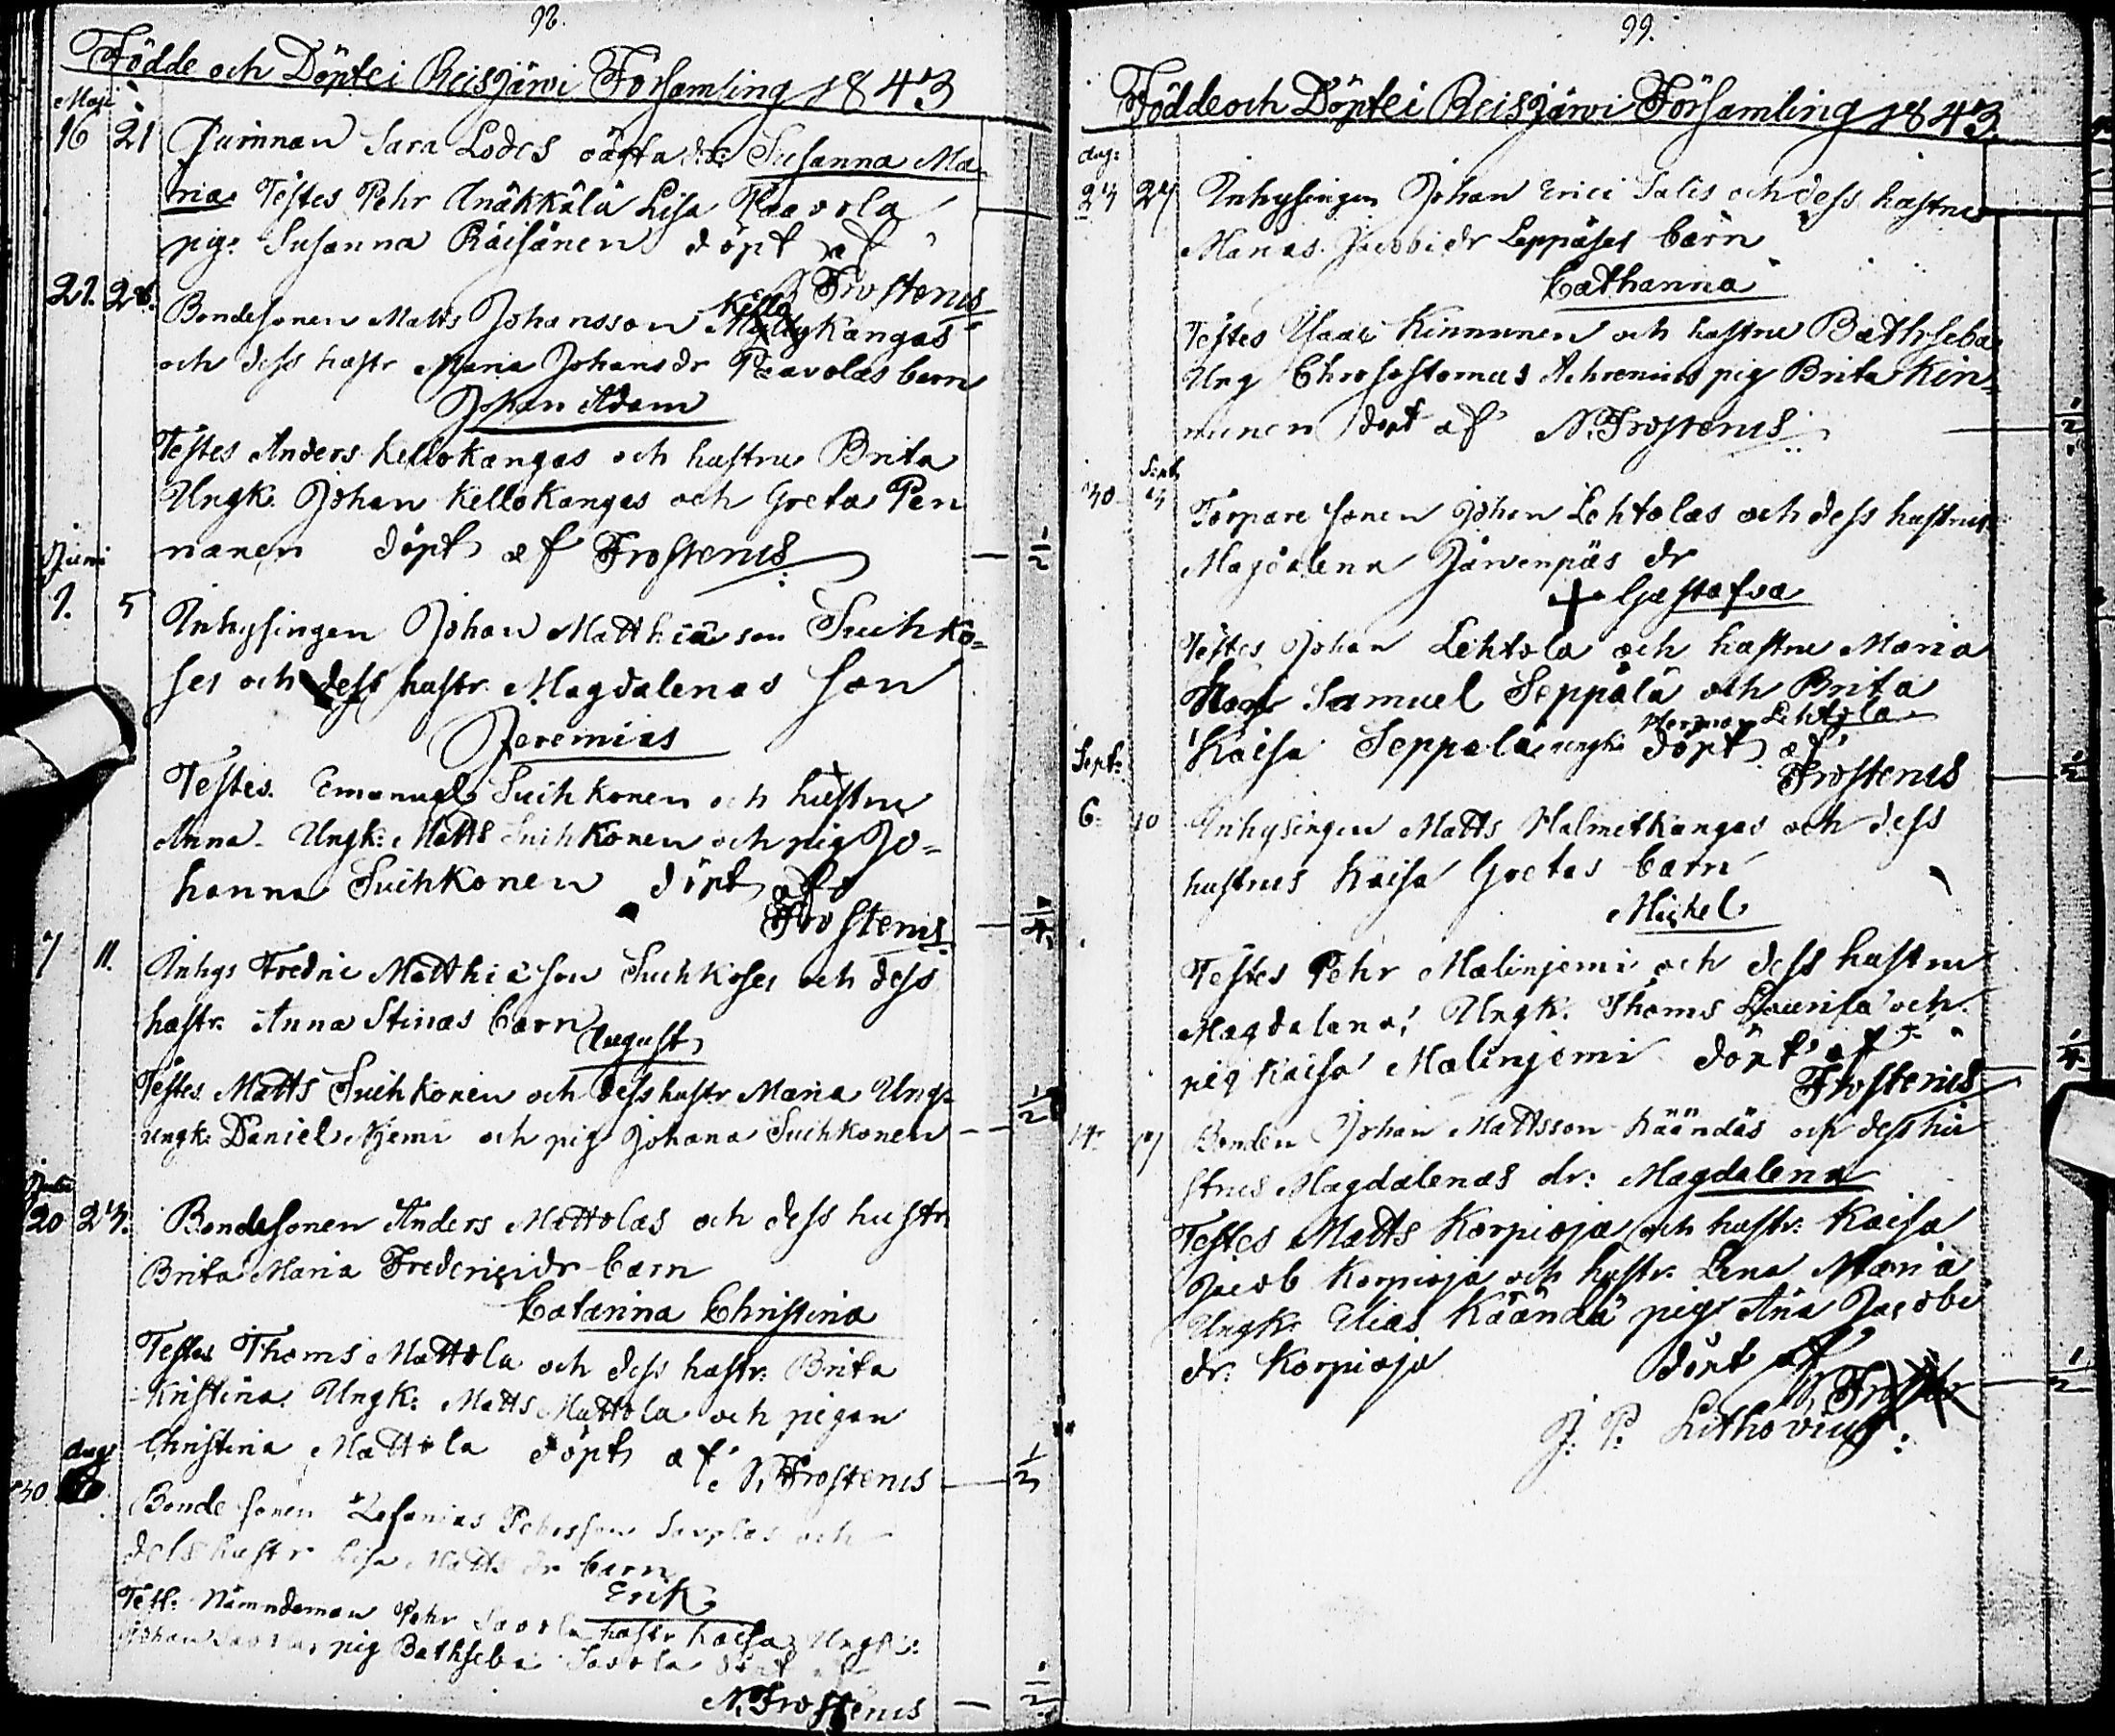 98.
Födde och Döpte i Reisjärwi Församling 1843
Maji
16 21 Qwinnan Sara Lodes oägta dr: Susanna Ma-
ria Testes Pehr Knäkkälä Lisa Paavola
pig: Susanna Räisänen döpt af
N. Frosterus
21. 28. Bondesonen Matts Johansson Kello kangas
och dess hustr Maria Johansdr Paavolas barn
Johan Adam
Testes Anders Kellokangas och hustru Brita
Ungk. Johan Kellokangas och Greta Pen
nanen döpt af Frosterus — 1/2
Juni
1. 5 Inhysingen Johan Matthiason Suihko=
ses och dess hustr. Magdalenas son
Jeremias
Testes. Emanuel Suihkonen och hustru
Anna. Ungk: Matts Suihkonen och pig Jo=
hanna Suihkonen döpt af
Frosterus — 1/4
7 11. Inhys Fredric Matthiason Suihkoses och dess
hustr. Anna Stinas barn
August
Testes Matts Suihkonen och dess hustr Maria Ung:
ungk: Daniel Njemi och pig Johana Suihkonen — 1/2
20 23. Bondesonen Anders Mattolas och dess hustr
Brita Maria Fredericidr barn
Catarina Christina
Testes Thoms Mattola och dess hustr. Brita
Kristina Ungk: Matts Mattola och pigan
Christina Mattola döpt af
N. Frosterus — 1/2
Aug
30 Bondesonen Zefanias Pehrsson Savolas och
dess hustr Lisa Matts dr barn
Erik
Test: Nämndeman Pehr Savola hustr Kaisa Ungk:
Johan Savola, pig Bathseba Savola döpt af
N. Frosterus — 1/2
99.
Födde och Döpte i Reisjärwi Församling 1843.
Aug:
24 27 Inhysingen Johan Erici Salis och dess hustrus
Marias Jacobi dr Leppäses barn
Catharina
Testes Isaac Kinnunen och hustru Bathseba
Ung Chrosostomus Achrenius pig Brita Kin=
nunen döpt af N. Frosterus — 1/2
Sept
30 3 Torparesonen Johan Lehtolas och dess hustrus
Magdalena Järwenpäs dr
+ Gustafva
Testes Johan Lehtola och hustru Maria
Samuel Seppälä och Brita
Kaisa Seppälä ungk: Herman Lehtola döpt af
Frosterus — 1/2
Sept:
6. 10 Inhysingen Matts Halmetkangas och dess
hustrus Kaisa Gretas barn
Michel
Testes Pehr Malinjemi och dess hustru
Magdalena, Ungk. Thoms Laurila och
pig Kaisa Malinjemi döpt af
Frosterus — 1/4
14. 17 Bonden Johan Mattsson Käändäs och dess hu
strus Magdalenas dr: Magdalena
Testes Matts Korpioja och hustr. Kaisa
Jacob Korpioja och hustr. Lena Maria
Ungk: Elias Kääntä pig Ana Jacobi
dr. Korpioja döpt af
J. P. Lithovius. — 1/2